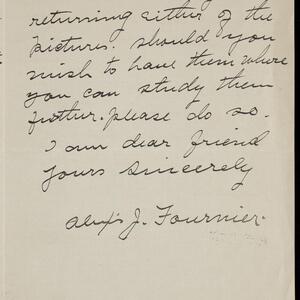 returning either of the
pictures. should you
wish to have them where
you can study them
further. please do so.
I am dear friend
yours sincerely
Alexis J. Fournier.